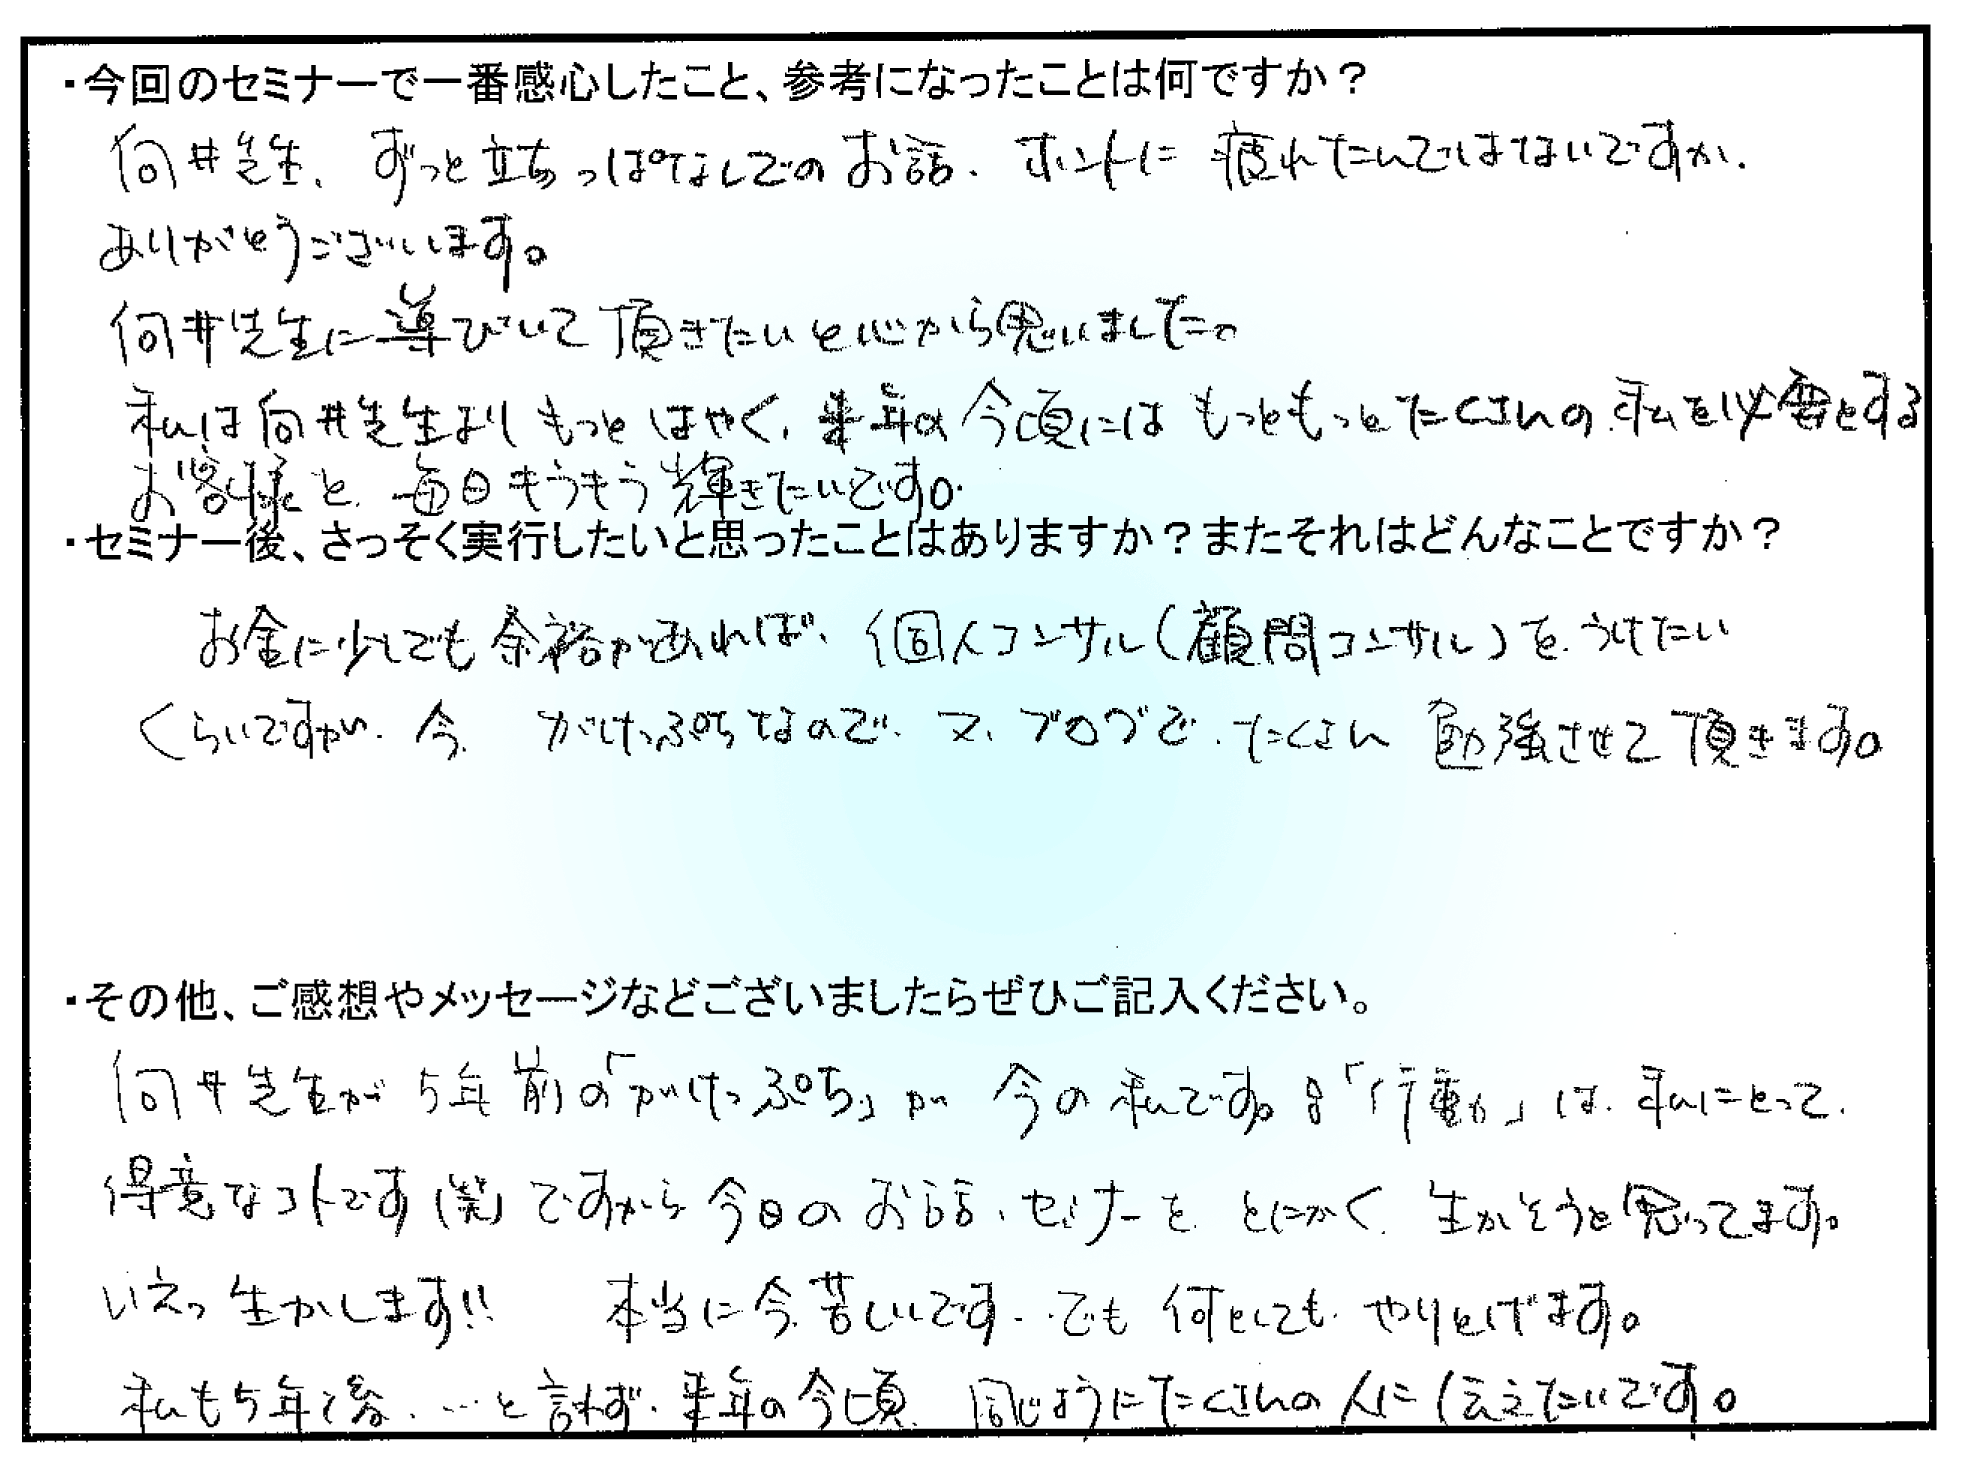 ・今回のセミナーで一番感心したこと、参考になったことは何ですか？
向井先生、ずっと立ちっぱなしでのお話、ホントに疲れたんではないですか、
ありがとうございます。
向井先生に導びいて頂きたいと心から思いました。
私は向井先生よりもっとはやく、来年の今頃にはもっともっとたくさんの私を必要とする
お客様と、毎日もうもう輝きたいです。
・セミナー後、さっそく実行したいと思ったことはありますか？またそれはどんなことですか？
お金に少しでも余裕があれば、個人コンサル（顧問コンサル）を、うけたい
くらいですが、今、がけっぷちなので、又、ブログで、たくさん勉強させて頂きます。
・その他、ご感想やメッセージなどございましたらぜひご記入ください。
向井先生が5年前の「がけっぷち」が今の私です。「行動」は、私にとって、
得意なコトです（笑）ですから今日のお話、セミナーを、とにかく、生かそうと思ってます。
いえっ生かします!!　本当に今、苦しいです…でも何としても、やりとげます。
私も5年後、…と言わず、来年の今頃、同じようにたくさんの人に伝えたいです。